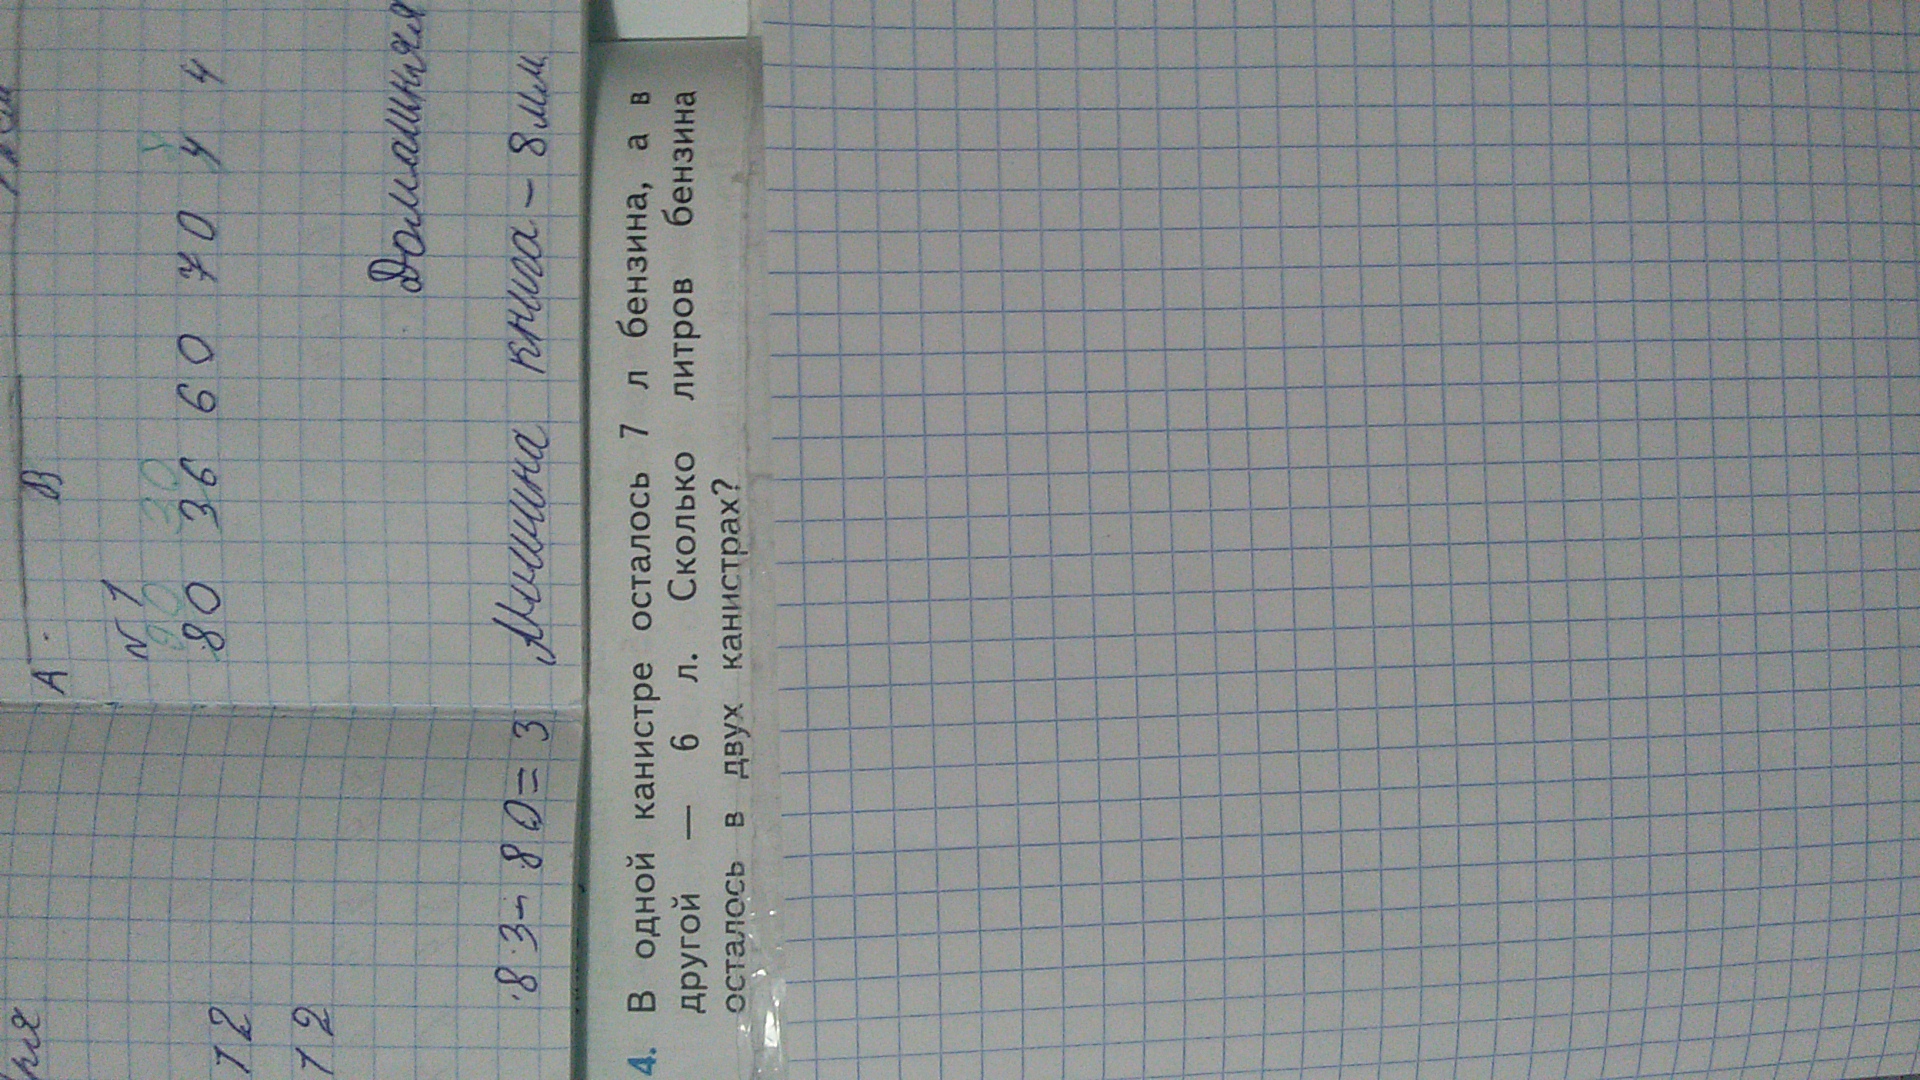 А В
N 1
90 30 у
80 36 60 70 у 4
12
12
Домашняя
83-80=3
книга - 8 мм
4. В одной канистре осталось 7 л бензина, а в
другой — 6 л. Сколько литров бензина
осталось в двух канистрах?